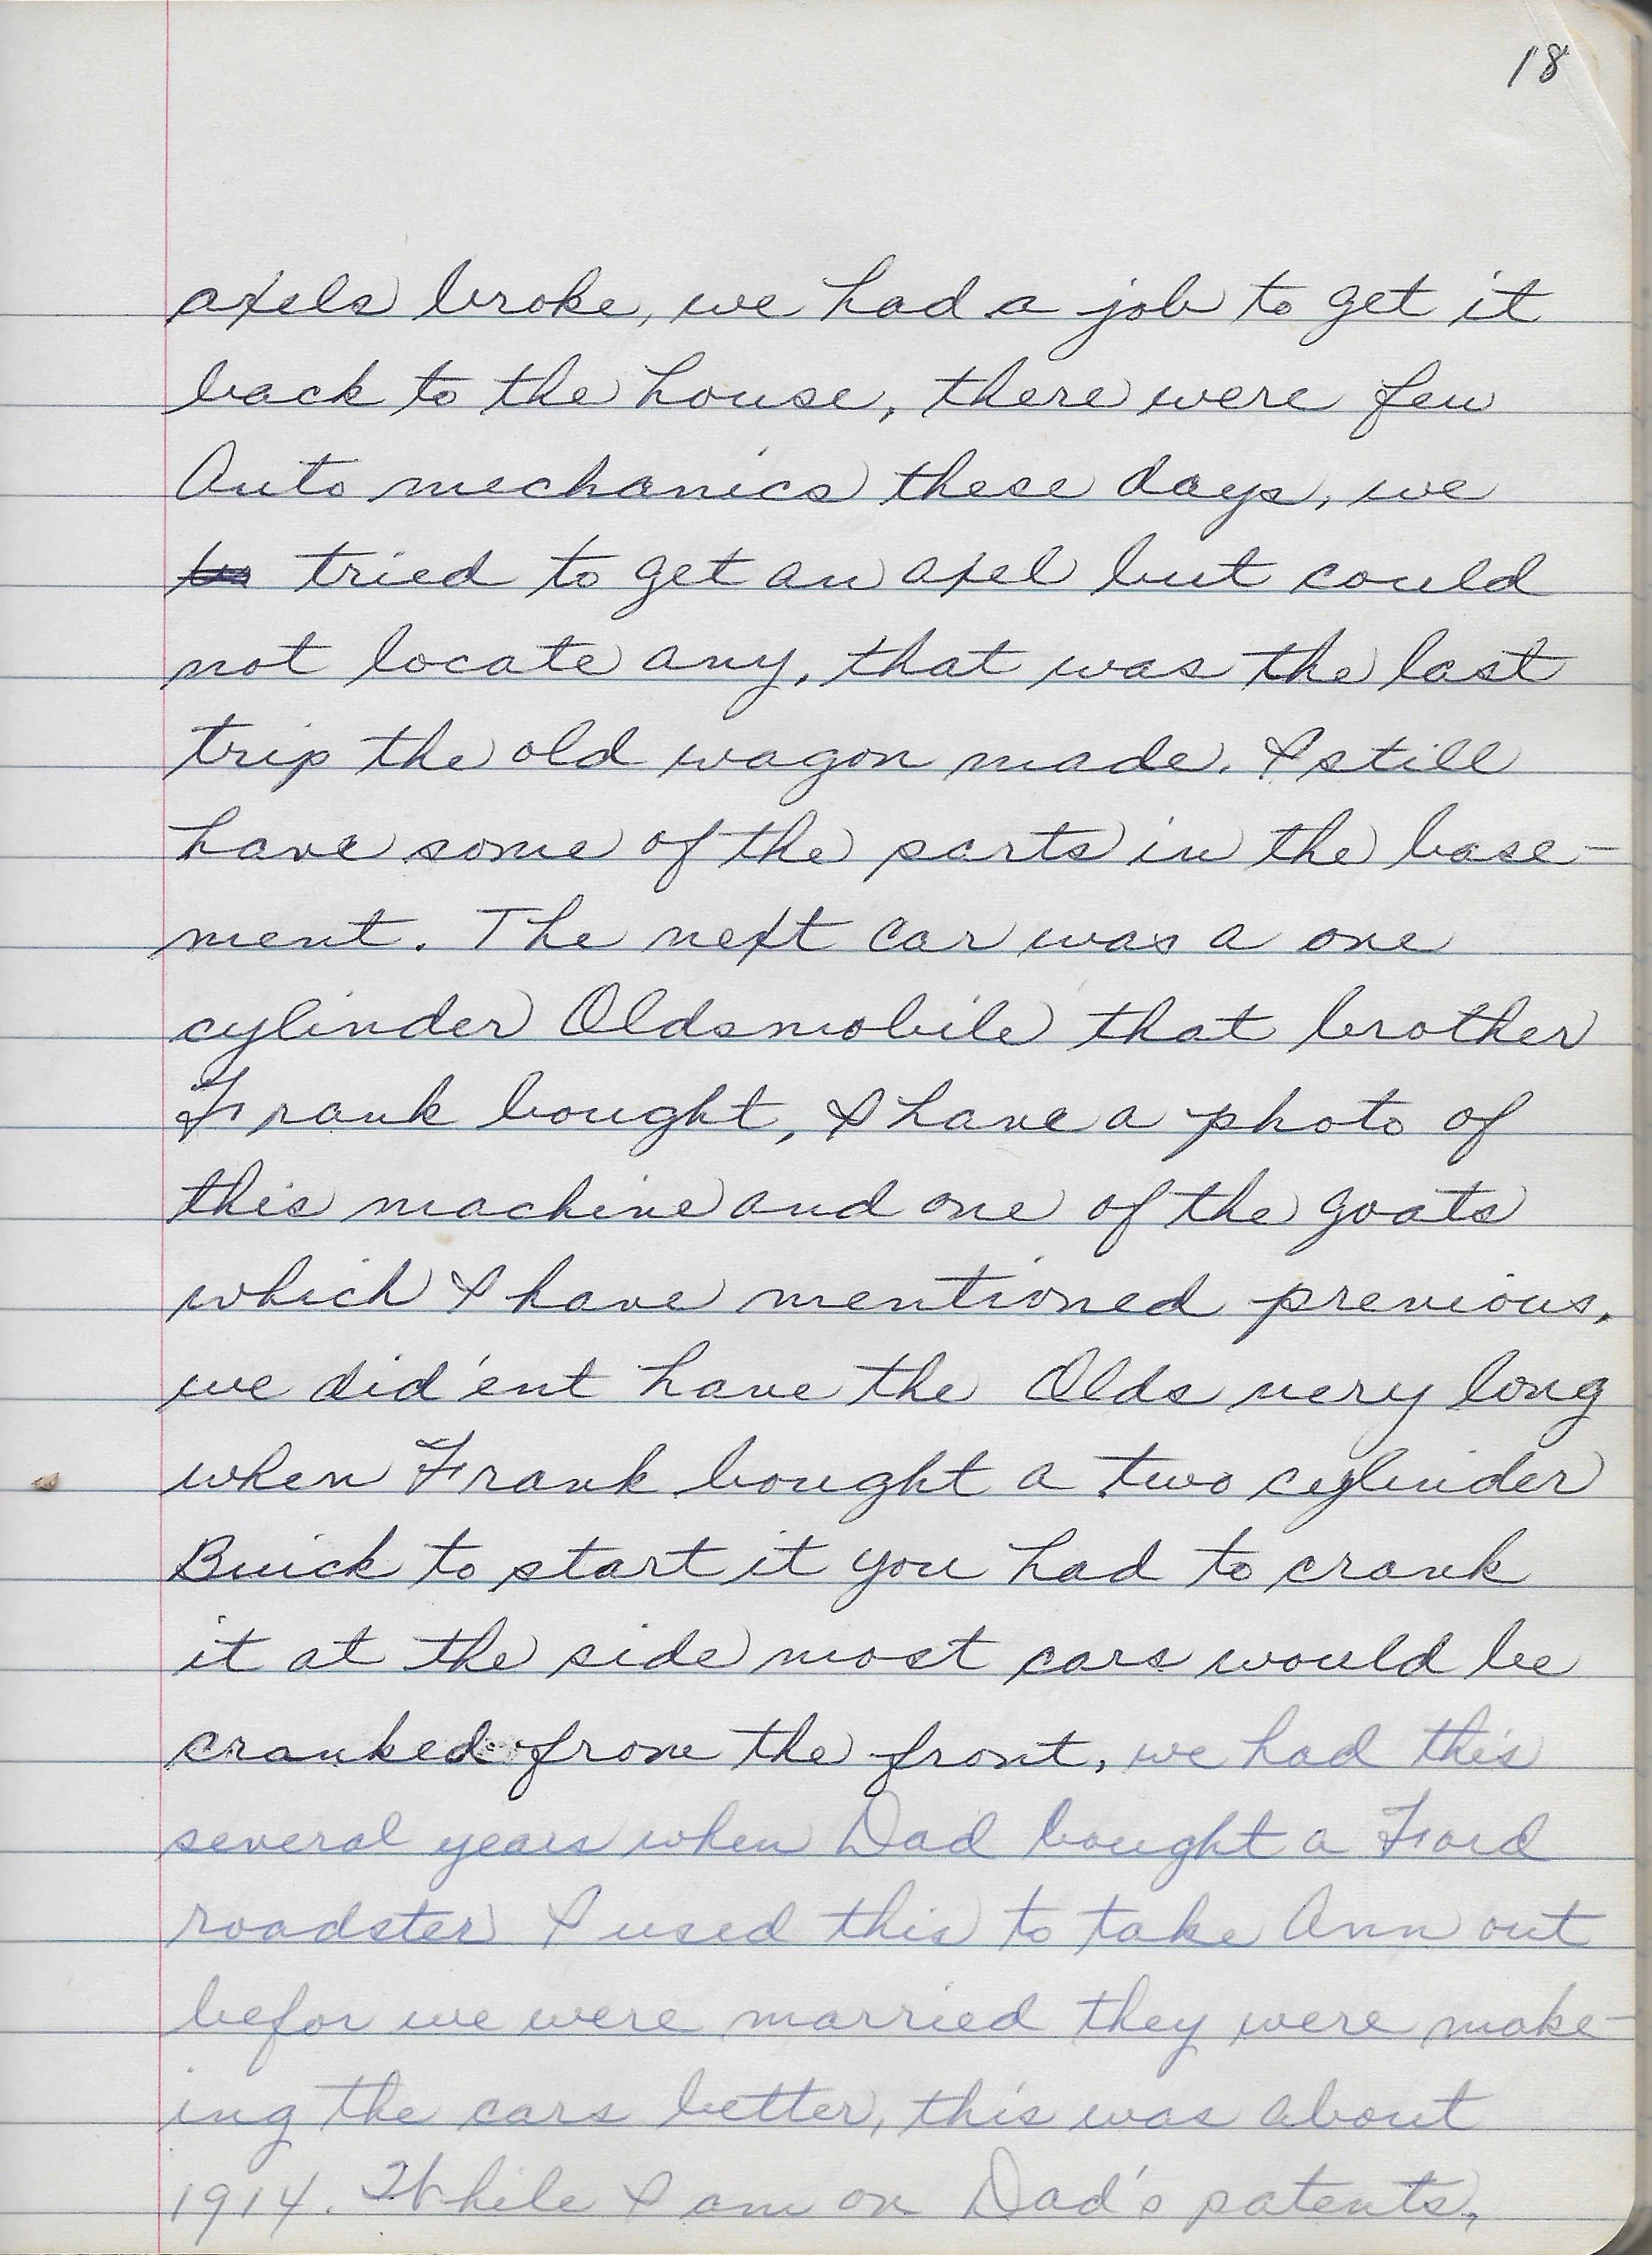 18
axels broke, we had a job to get it
back to the house, there were few
Auto mechanics these days, we
tried to get an axel but could
not locate any, that was the last
trip the old wagon made. I still
have some of the parts in the base-
ment. The next car was a one
cylinder Oldsmobile that brother
Frank bought, I have a photo of
this machine and one of the goats
which I have mentioned previous,
we did'ent have the Olds very long
when Frank bought a two cylinder
Buick to start it you had to crank
it at the side most cars would be
cranked from the front, we had this
several years when Dad bought a Ford
roadster I used this to take Ann out
befor we were married they were make-
ing the cars better, this was about
1914. While I am on Dad's patents,